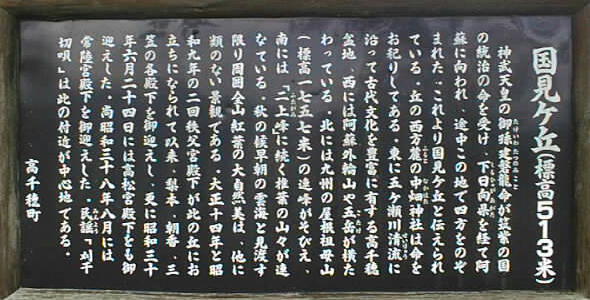 国見ケ丘(標高513米)
神武天皇の御孫建磐龍命が筑紫の国
の統治の命を受け、下日向県を経て阿
蘇に向われ、途中この地で四方をのぞ
まれた。これより国見ケ丘と伝えられ
ている。丘の西方麓の中畑神社は命を
お祀してある。東に五ケ瀬川清流に
沿って古代文化を豊富に有する高千穂
盆地、西には阿蘇外輪山や五岳が横た
わっている。北には九州の屋根祖母山
(標高一七五七米)の連峰がそびえ、
南には「二上峰」に続く椎葉の山々が連
なている。秋の候早朝の雲海と見渡す
限り周囲全山紅葉の大自然美は、他に
類のない景観である。大正十四年と昭
和九年の二回秩父宮殿下が此の丘にお
立ちになられて以来、梨本、朝香、三
笠の各殿下を御迎えし、更に昭和三十
年六月二十四日には高松宮殿下をも御
迎えした。尚昭和三十八年八月には
常陸宮殿下を御迎えした。民謡「刈干
切唄」は此の付近が中心地である。
高千穂町